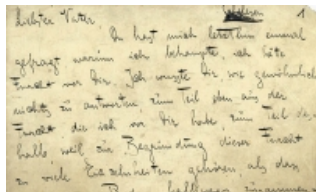 Liebster Vater 1
Du hast mich letzthin einmal
gefragt, warum ich behaupte, ich hätte
Furcht vor Dir. Ich wusste Dir, wie gewöhnlich,
nichts zu antworten, zum Teil eben aus der
Furcht die ich vor Dir habe, zum Teil des-
halb, weil zur Begründung dieser Furcht
zu viele Einzelnheiten gehören, als dass
zusammen